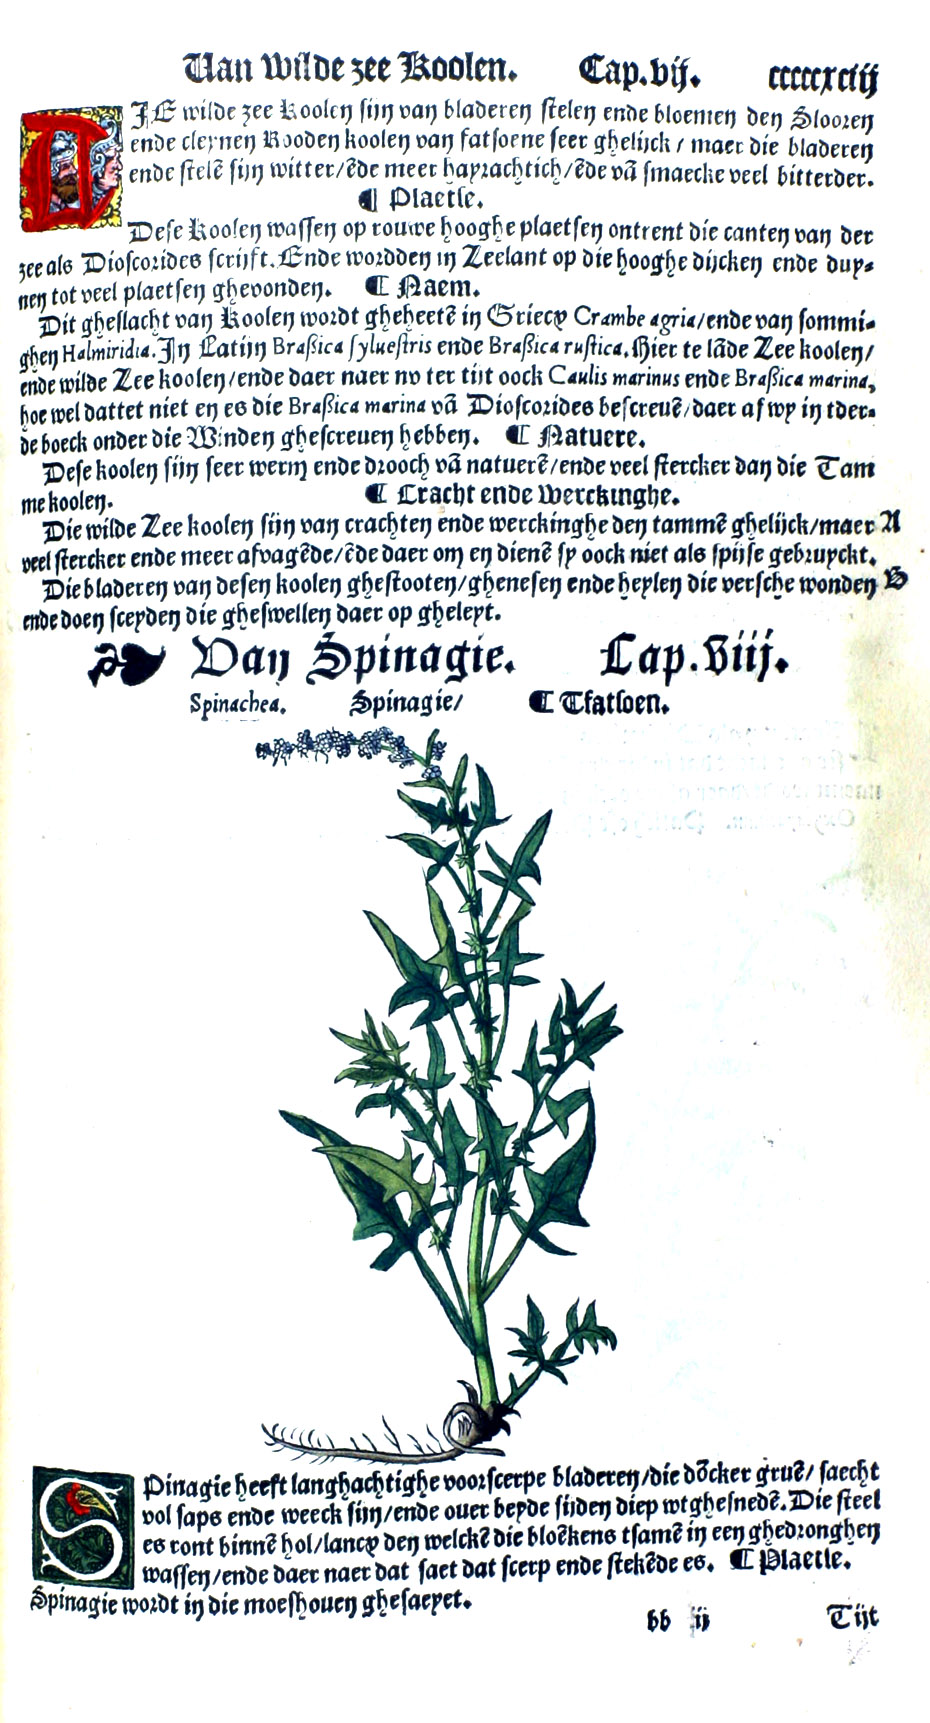 Van wilde zee Koolen. Cap.vij. cccccxciij
DIE wilde zee Koolen sijn van bladeren stelen ende bloemen den Slooren
ende cleynen Rooden koolen van fatsoene seer ghelijck / maer die bladeren
ende stelē sijn witter/ēde meer hayrachtich/ēde vā smaecke veel bitterder.
¶ Plaetse.
Dese Koolen wassen op rouwe hooghe plaetsen ontrent die canten van der
zee als Dioscorides scrijft. Ende wordden in Zeelant op die hooghe dijcken ende duy-
nen tot veel plaetsen ghevonden. ¶ Naem.
Dit gheslacht van Koolen wordt gheheetē in Griecx Crambe agria/ende van sommi-
ghen Halmiridia. In Latijn Braßica syluestris ende Braßica rustica. Hier te lāde Zee koolen/
ende wilde Zee koolen/ende daer naer nv ter tijt oock Caulis marinus ende Braßica marina,
hoe wel dattet niet en es die Braßica marina vā Dioscorides bescreuē/daer af wy in tder-
de boeck onder die Winden ghescreuen hebben. ¶ Natuere.
Dese koolen sijn seer werm ende drooch vā natuerē/ende veel stercker dan die Tam
me koolen. ¶ Cracht ende Werckinghe.
Die wilde Zee koolen sijn van crachten ende werckinghe den tammē ghelijck/maer A
veel stercker ende meer afvagēde/ēde daer om en dienē sy oock niet als spijse gebruyckt.
Die bladeren van desen koolen ghestooten/ghenesen ende heylen die versche wonden B
ende doen sceyden die gheswellen daer op gheleyt.
Van Spinagie. Cap.viij.
Spinachea. Spinagie/ ¶ Tfatsoen.
SPinagie heeft langhachtighe voorscerpe bladeren/die dōcker gruē/ saecht
vol saps ende weeck sijn/ende ouer beyde sijden diep wtghesnedē. Die steel
es ront binnē hol/lancx den welckē die bloēkens tsamē in een ghedronghen
wassen/ende daer naer dat saet dat scerp ende stekēde es. ¶ Plaetse.
Spinagie wordt in die moeshouen ghesaeyet.
bb ij Tijt